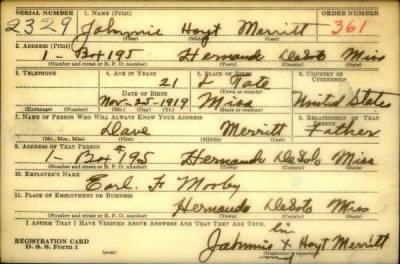 SERIAL NUMBER 1. NAME (Print) ORDER NUMBER
2329 Johnnie Hoyt Merritt 361
(First) (Middle) (Last)
2. ADDRESS (Print)
1- Box 195 Hernando DeSoto Miss
(Number and street or R. F. D. number) (Town) (County) (State)
3. TELEPHONE 4. AGE IN YEARS 5. PLACE OF BIRTH 6. COUNTRY OF CITIZENSHIP
21 Tate
DATE OF BIRTH (Town or county)
Nov-25-1919 Miss United State
(Exchange) (Number) (Mo.) (Day) (Yr.) (State or country)
7. NAME OF PERSON WHO WILL ALWAYS KNOW YOUR ADDRESS 8. RELATIONSHIP OF THAT PERSON
Dave Merritt Father
(Mr., Mrs., Miss) (First) (Middle) (Last)
9. ADDRESS OF THAT PERSON
1- Box #195 Hernando DeSoto Miss
(Number and street or R. F. D. number) (Town) (County) (State)
10. EMPLOYER'S NAME
Earl F
11. PLACE OF EMPLOYMENT OR BUSINESS
Hernando DeSoto Miss
(Number and street or R. F. D. number) (Town) (County) (State)
I AFFIRM THAT I HAVE VERIFIED ABOVE ANSWERS AND THAT THEY ARE TRUE.
REGISTRATION CARD
D. S. S. Form 1
Johnnie X Hoyt Merritt
(Registrant's signature)